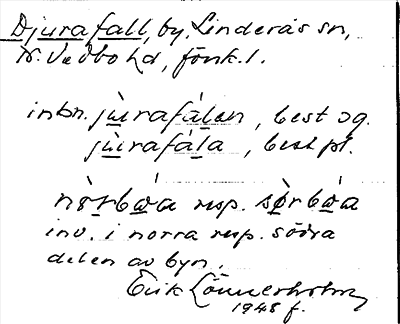 Djurafall, by, Linderås sn,
N. Vedbo hd, Jönk. l.
inbn. jùrafálen, best sg.
jùrafála, best pl.
nò̀rboa resp. sø̀rboa
inv. i norra resp. södra
delen av byn.
Erik Lönnerholm
1948 f.